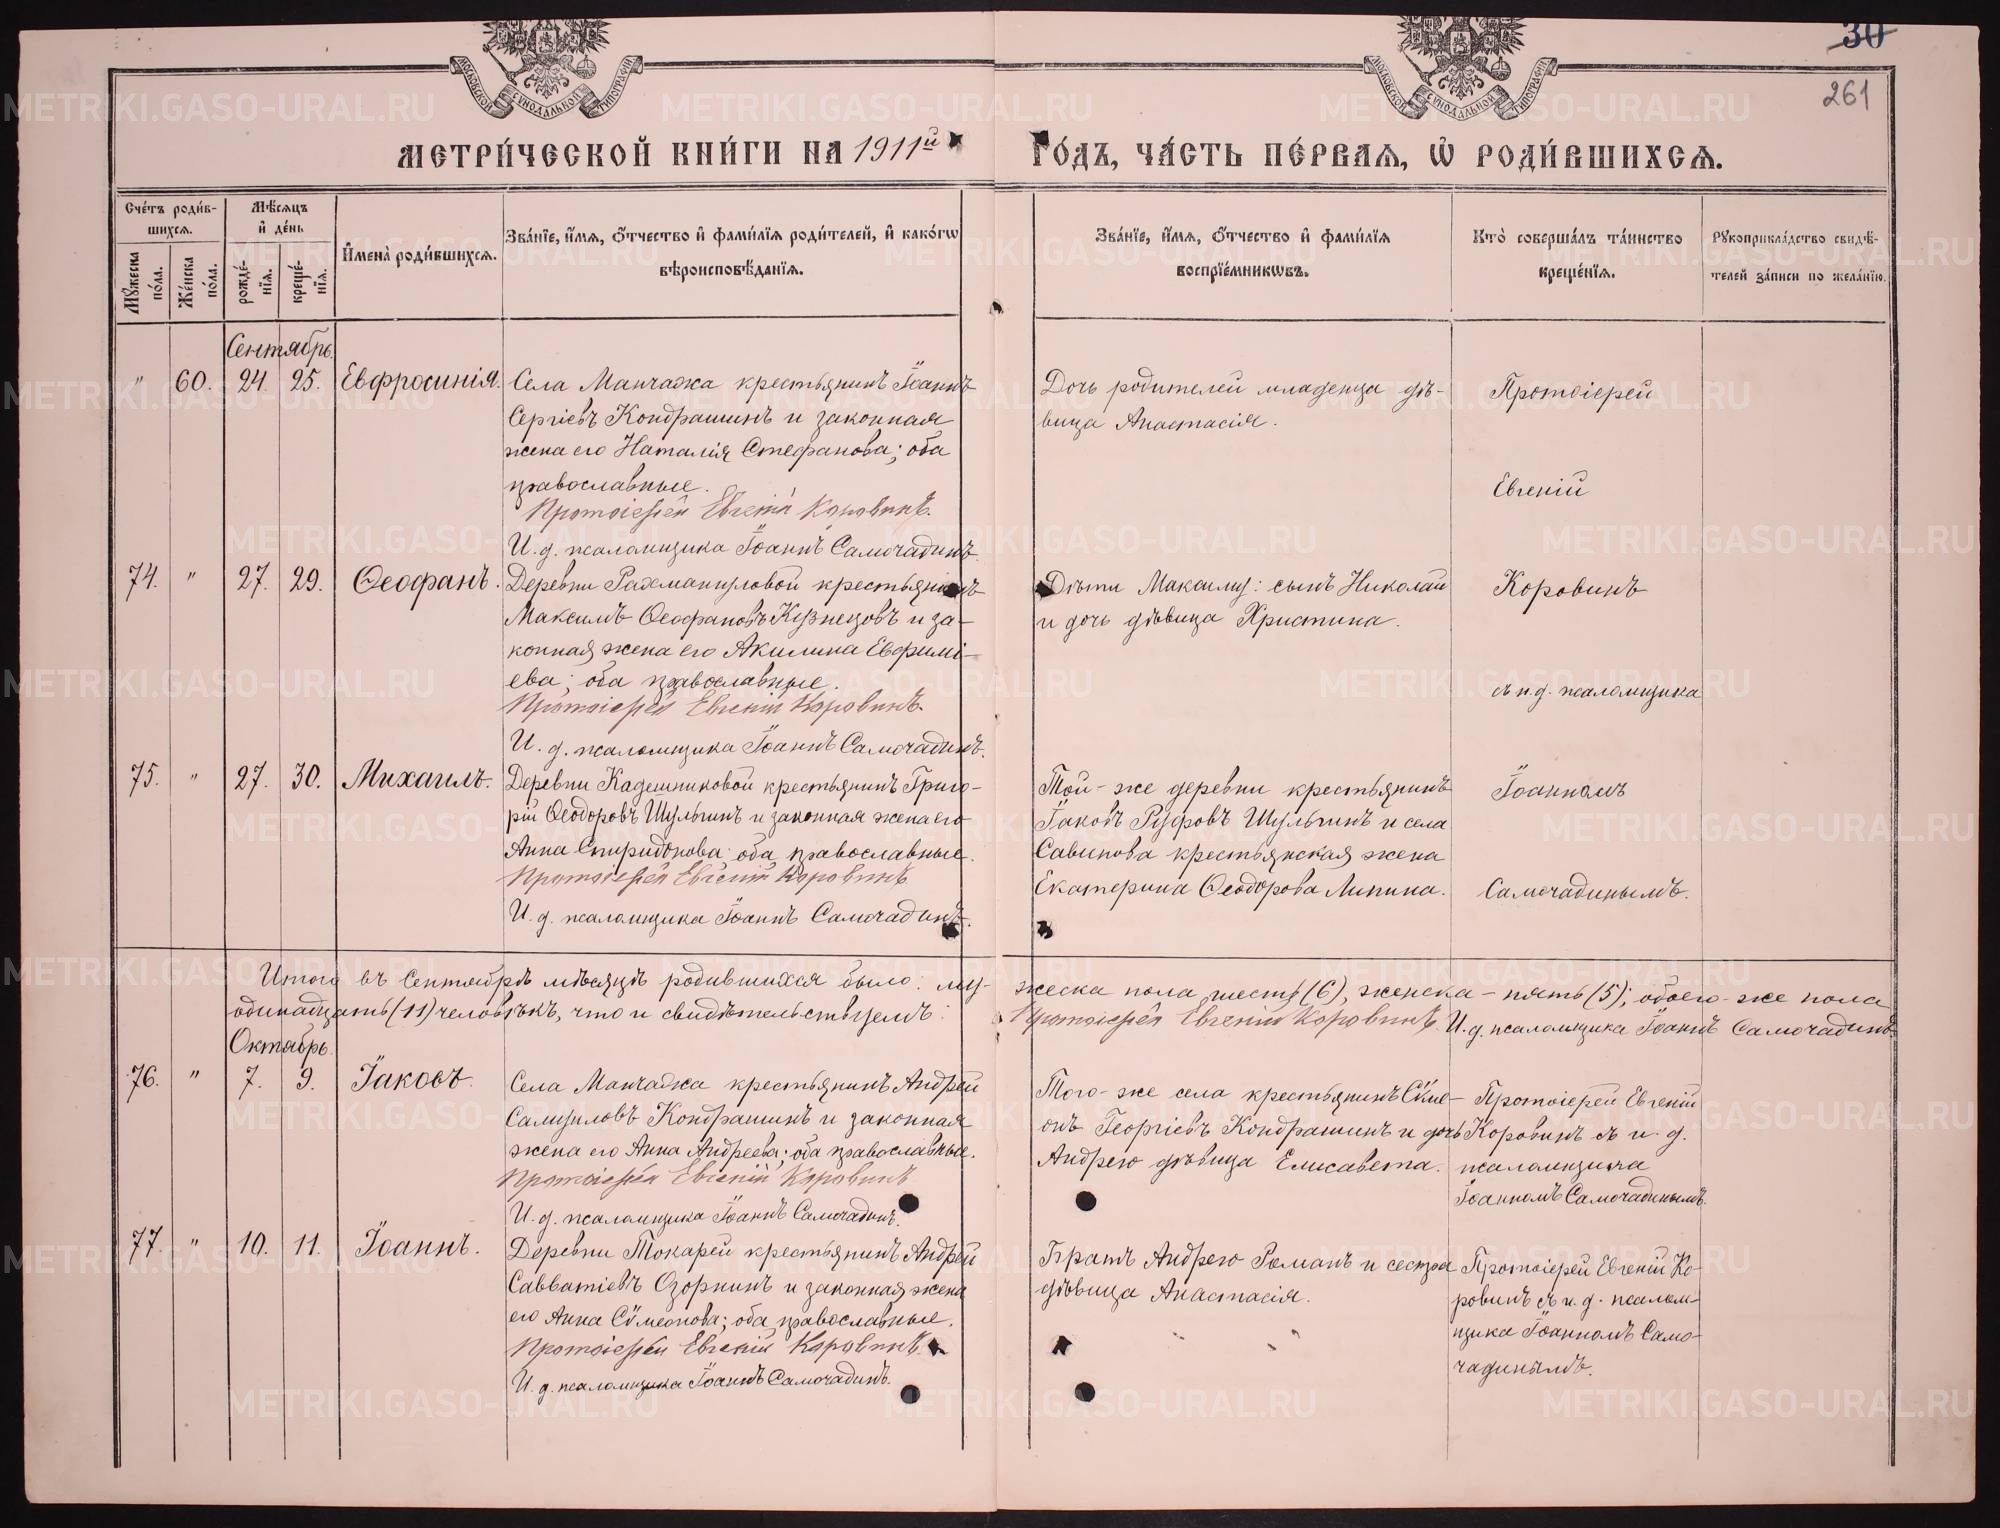 30
261
МОСКОВСКОЙ СѴНОДАЛЬНОЙ ТИПОГРАФІИ
МОСКОВСКОЙ СѴНОДАЛЬНОЙ ТИПОГРАФІИ
МЕТРИ́ЧЕСКОЙ КНИ́ГИ НА 1911й ГО́ДЪ, ЧА́СТЬ ПЕ́РВАѦ, Ѡ РОДИ́ВШИХСѦ.
Сче́тъ роди́в-
шихсѧ.
Мꙋ́жеска по́ла.
Же́нска по́ла.
Мѣ́сѧцъ
и҆ де́нь
рожде́-
нїѧ.
креще́-
нїѧ.
И҆мена̀ роди́вшихсѧ.
Зва́нїе, и҆́мѧ, ѻ҆́тчество и҆ фами́лїѧ роди́телей, и҆ како́гѡ
вѣроисповѣ́данїѧ.
Зва́нїе, и҆́мѧ, ѻ҆́тчество и҆ фами́лїѧ
воспрїе́мникѡвъ.
Кто̀ соверша́лъ та́инство
креще́нїѧ.
Рꙋкоприкла́дство свидѣ́-
телей за́писи по жела́нїю.
Сентябрь.
" 60. 24. 25. Евфросинія.
Села Манчажа крестьянинъ Іоаннъ
Сергіевъ Кондрашинъ и законная
жена его Наталія Стефанова; оба
православные.
Протоіерей Евгеній Коровинъ.
И. д. псаломщика Іоаннъ Самочадинъ.
Дочь родителей младенца дѣ-
вица Анастасія.
Протоіерей
Евгеній
74. " 27. 29. Ѳеофанъ.
Деревни Рахмангуловой крестьянинъ
Максимъ Ѳеофановъ Кузнецовъ и за-
конная жена его Акилина Евфимі-
ева; оба православные.
Протоіерей Евгеній Коровинъ.
И. д. псаломщика Іоаннъ Самочадинъ.
Дѣти Максиму: сынъ Николай
и дочь дѣвица Христина.
Коровинъ
съ и.д. псаломщика
75. " 27. 30. Михаилъ.
Деревни Кадешниковой крестьянинъ Григо-
рій Ѳеодоровъ Шульгинъ и законная жена его
Анна Спиридонова; оба православные.
Протоіерей Евгеній Коровинъ
И. д. псаломщика Іоаннъ Самочадинъ.
Той-же деревни крестьянинъ
Іаковъ Руфовъ Шульгинъ и села
Савинова крестьянская жена
Екатерина Ѳеодорова Липина.
Іоанномъ
Самочадинымъ.
Итого въ Сентябрѣ мѣсяцѣ родившихся было: му-жеска пола шесть (6), женска – пять (5); обоего-же пола
одинадцать (11) человѣкъ, что и свидѣтельствуемъ:
Протоіерей Евгеній Коровинъ. И.д. псаломщика Іоаннъ Самочадинъ.
Октябрь.
76. " 7. 9. Іаковъ.
Села Манчажа крестьянинъ Андрей
Самуиловъ Кондрашинъ и законная
жена его Анна Андреева; оба православные.
Протоіерей Евгеній Коровинъ
И. д. псаломщика Іоаннъ Самочадинъ.
Того-же села крестьянинъ Сѵме-
онъ Георгіевъ Кондрашинъ и дочь
Андрею дѣвица Елисавета.
Протоіерей Евгеній
Коровинъ съ и. д.
псаломщика
Іоанномъ Самочадинымъ.
77. " 10. 11. Іоаннъ.
Деревни Токарей крестьянинъ Андрей
Савватіевъ Озорнинъ и законная жена
его Анна Сѵмеонова; оба православные.
Протоіерей Евгеній Коровинъ.
И. д. псаломщика Іоаннъ Самочадинъ.
Братъ Андрею Романъ и сестра
дѣвица Анастасія.
Протоіерей Евгеній Ко-
ровинъ съ и. д. псалом-
щика Іоанномъ Само-
чадинымъ.
METRIKI.GASO-URAL.RU